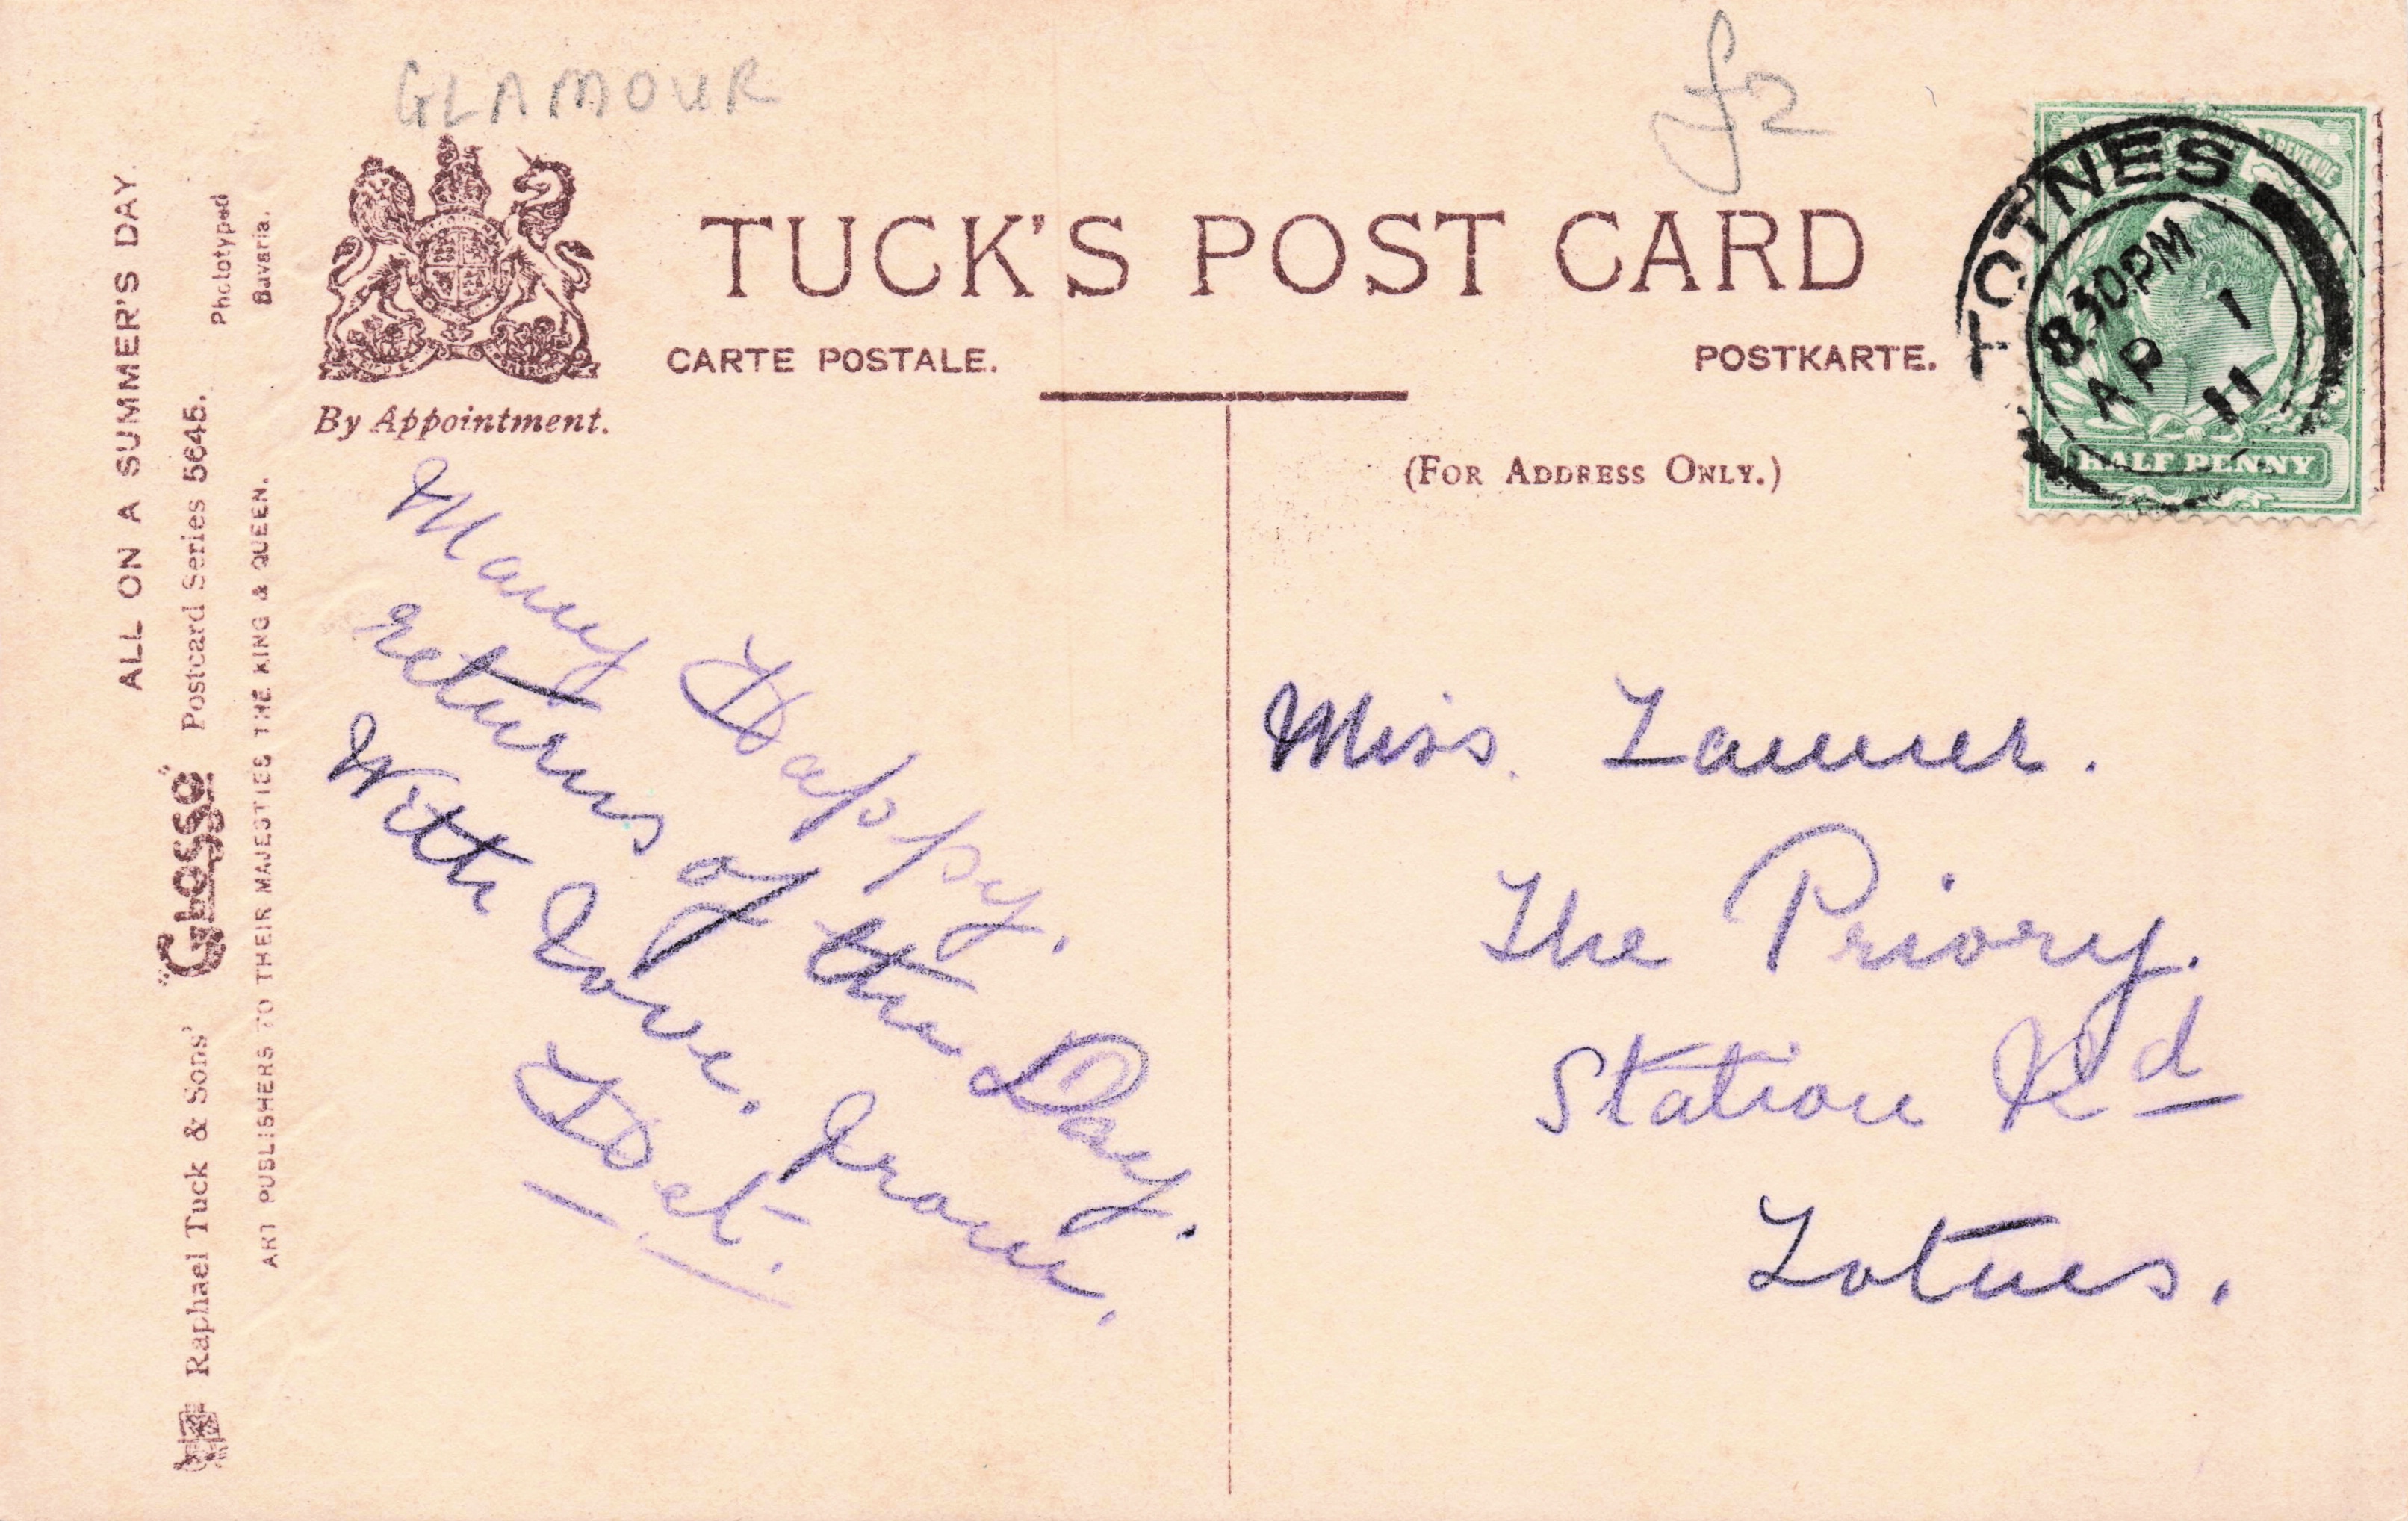 GLAMOUR
£2
TUCK'S POST CARD
CARTE POSTALE.
POSTKARTE.
By Appointment.
(FOR ADDRESS ONLY.)
TOTNES
8.30PM
AP 1
11
HALF PENNY
REVENUE
ALL ON A SUMMER'S DAY.
Raphael Tuck & Sons' "GLOSSO" Postcard Series 5645.
Phototyped
Bavaria.
ART PUBLISHERS TO THEIR MAJESTIES THE KING & QUEEN.
Many Happy.
returns of the Day.
With Love. from.
Miss.
The Priory.
Station Rd
Totnes.